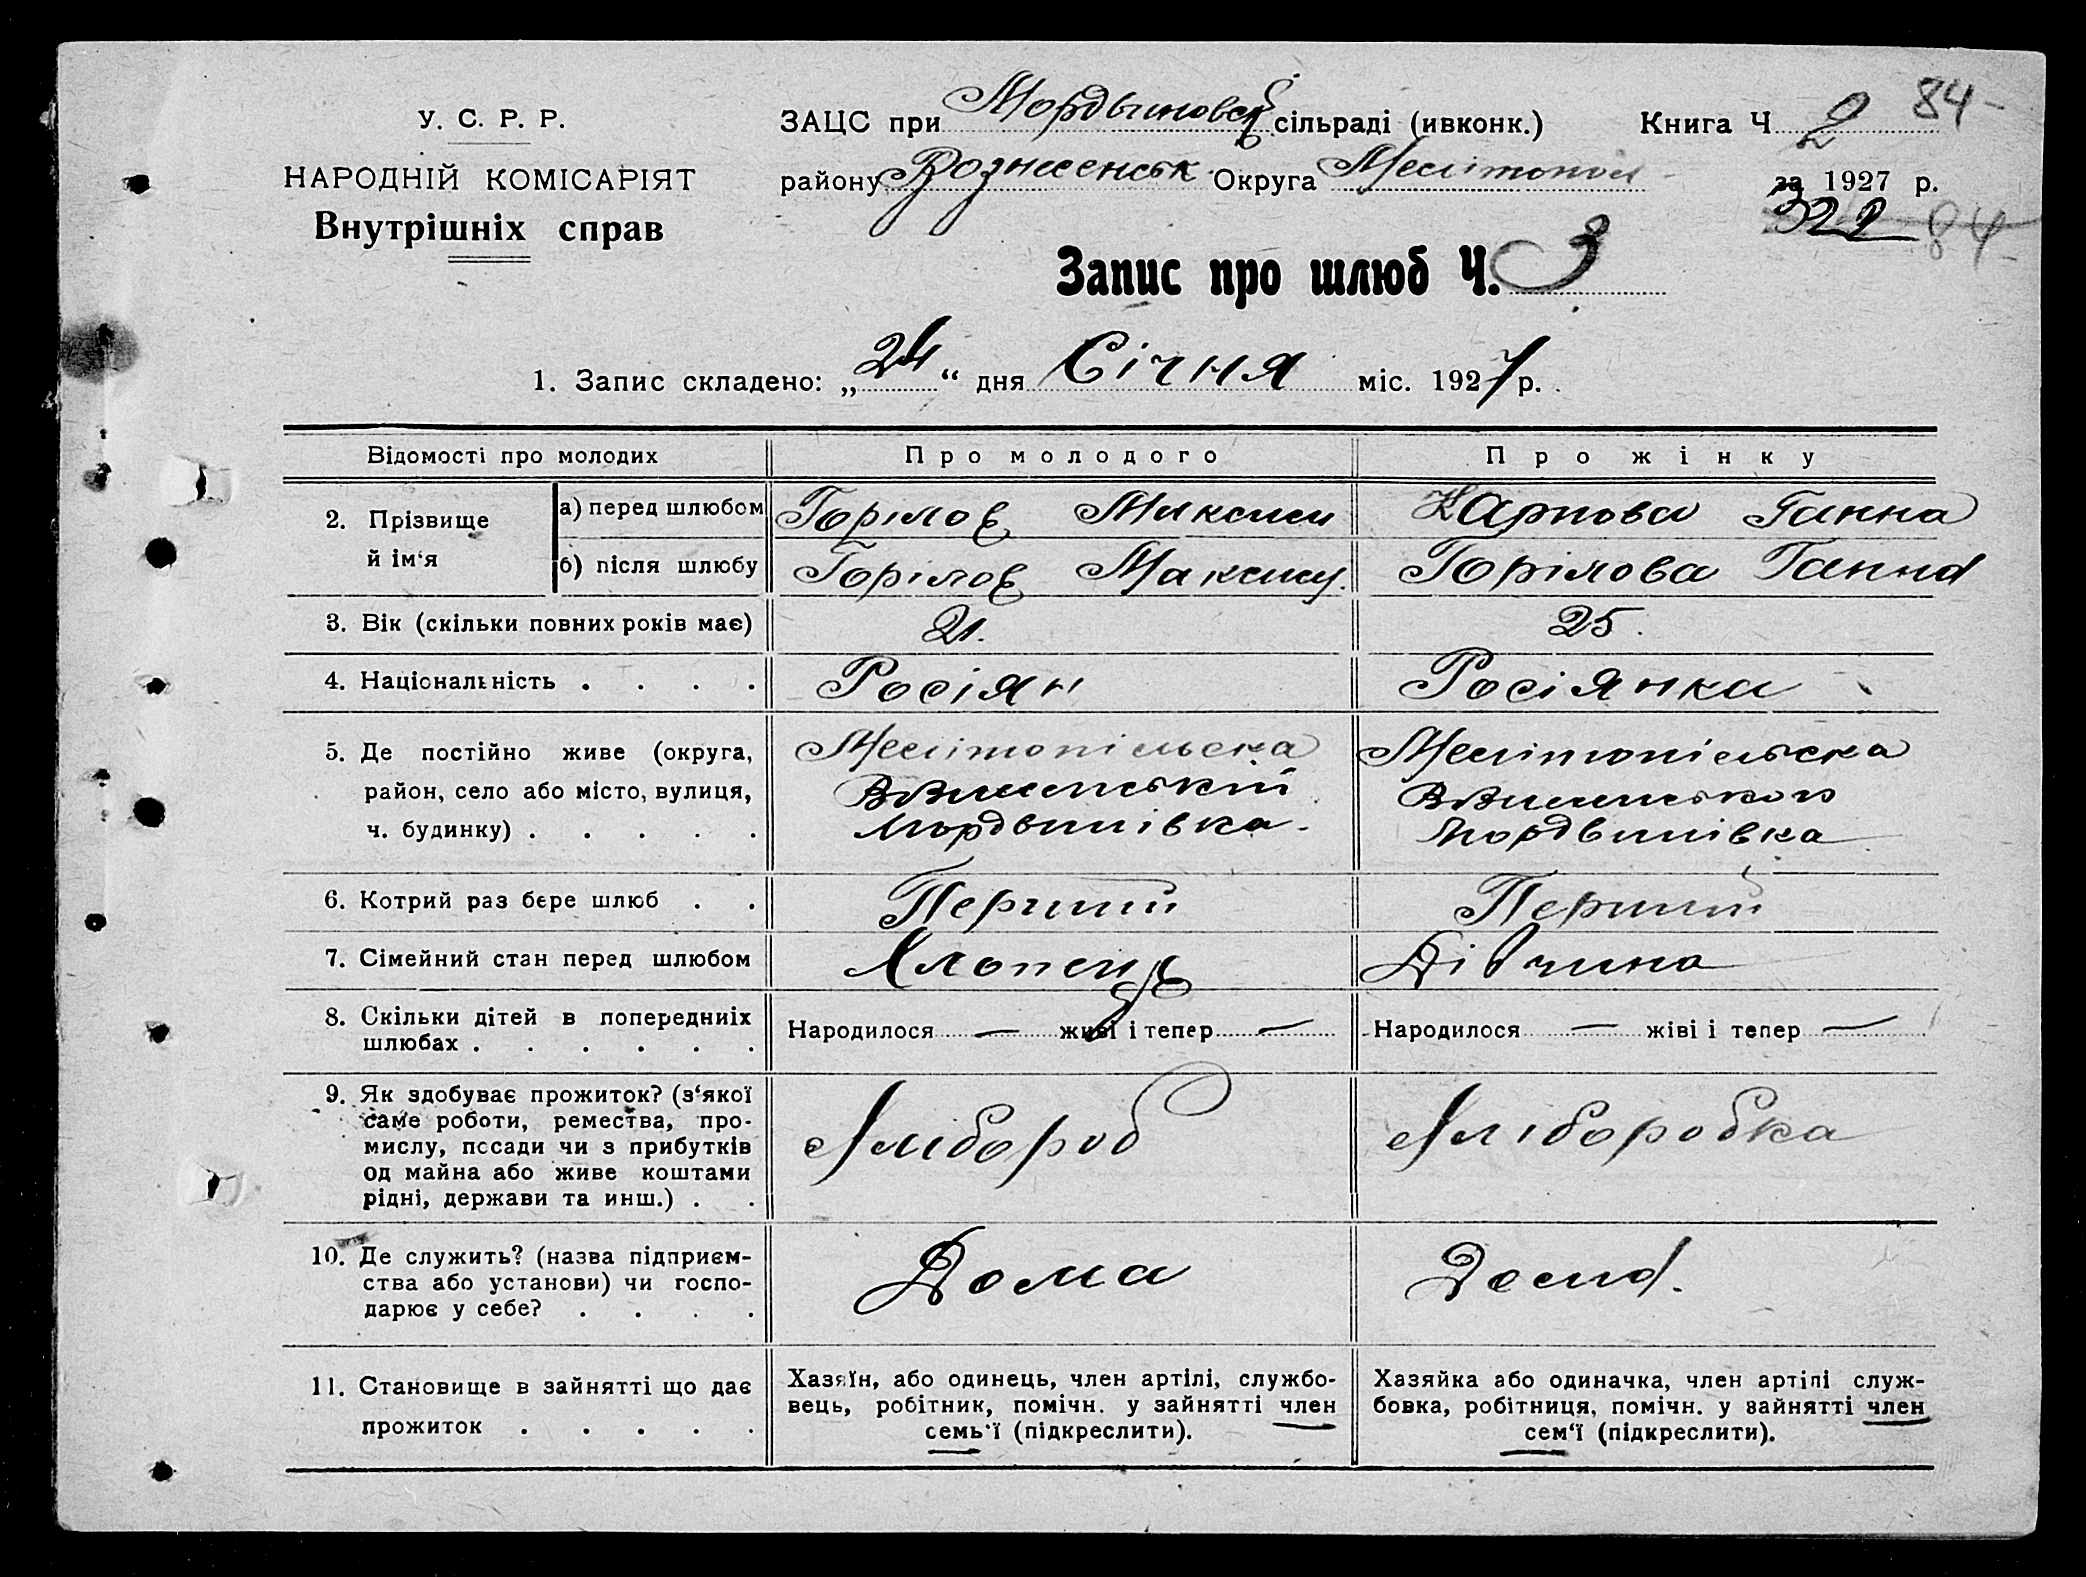 84-
У. С. Р. Р.
НАРОДНІЙ КОМІСАРІЯТ
Внутрішніх справ
ЗАЦС при Мордвиновскій сільраді (ивконк.) Книга Ч 2
району Вознесенськ Округа Мелітопол за 1927 р.
322 84-
Запис про шлюб Ч. 3
1. Запис складено: „24“ дня Січня міс. 1927 р.
Відомості про молодих Про молодого Про жінку
2. Прізвище й ім‘я
а) перед шлюбом Горілов Максим Карпова Ганна
б) після шлюбу Горілов Максим. Горілова Ганна
3. Вік (скільки повних років має) 21. 25.
4. Національність . . . . Росіян Росіянка
5. Де постійно живе (округа, Мелітопільська Мелітопільська
район, село або місто, вулиця,
ч. будинку) . . . . . Мордвинівка. Мордвинівка
6. Котрий раз бере шлюб . . Перший Перший
7. Сімейний стан перед шлюбом Хлопець Дівчина
8. Скільки дітей в попередниіх
шлюбах . . . . . . Народилося — живі і тепер — Народилося — жіві і тепер —
9. Як здобуває прожиток? (з‘якої
саме роботи, ремества, про-
мислу, посади чи з прибутків Хлібороб Хліборобка
од майна або живе коштами
рідні, держави та инш.) . .
10. Де служить? (назва підприєм-
ства або установи) чи госпо- Дома Дома.
дарює у себе? . . . .
11. Становище в зайнятті що дає
прожиток . . . . .
Хазяїн, або одинець, член артілі, службо-
вець, робітник, помічн. у зайнятті член
семь‘ї (підкреслити).
Хазяйка або одиначка, член артілі служ-
бовка, робітниця, помічн. у зайнятті член
сем‘ї (підкреслити).